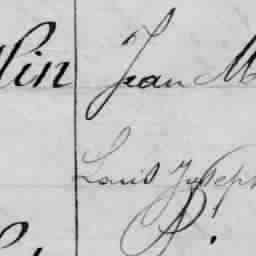 lin Jean M
Louis Joseph
P.